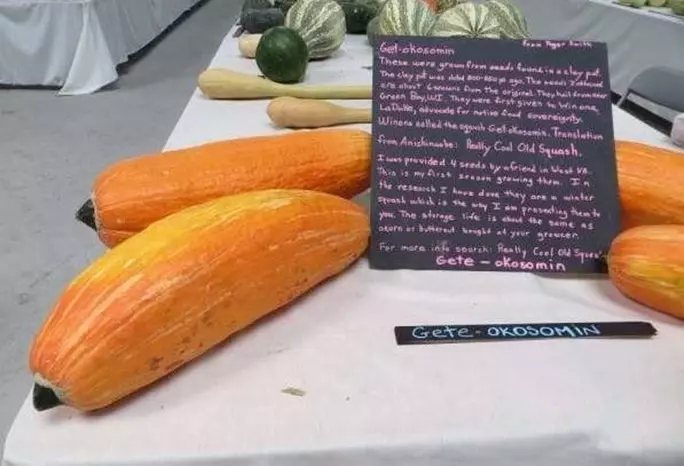 Get-okosomin From Roger Smith
These were grown from seeds found in a clay pot.
The clay pot was dated 800-850 yr. ago. The seeds I obtained
are about 6 seasons from the original. They hail from the
Green Bay, WI. They were first given to Winona
LaDuke, advocate for native food sovereignty.
Winona called the squash Gete okosomin. Translation
from Anishinaabe: Really Cool Old Squash.
I was provided 4 seeds by a friend in West VA.
This is my first season growing them. In
the research I have done they are a winter
squash which is the why I am presenting them to
you. The storage life is about the same as
acorn or butternut bought at your grocer.
For more info search: Really Cool Old Squash
Gete - okosomin
Gete - OKOSOMIN